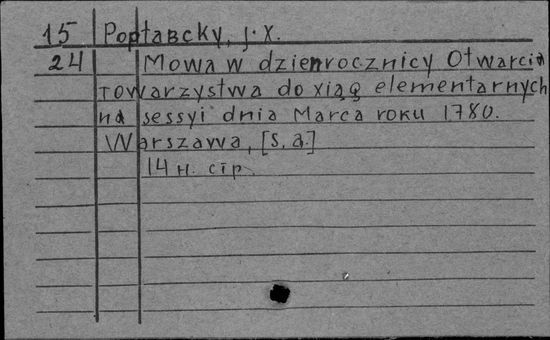 15 Popławcky, J. X.
24 Mowa w dzień rocznicy Otwarcia
towarzystwa do xiąg elementarnych
na sessyi dnia Marca roku 1780.
Warszawa, [s. a.]
14 н. стр.